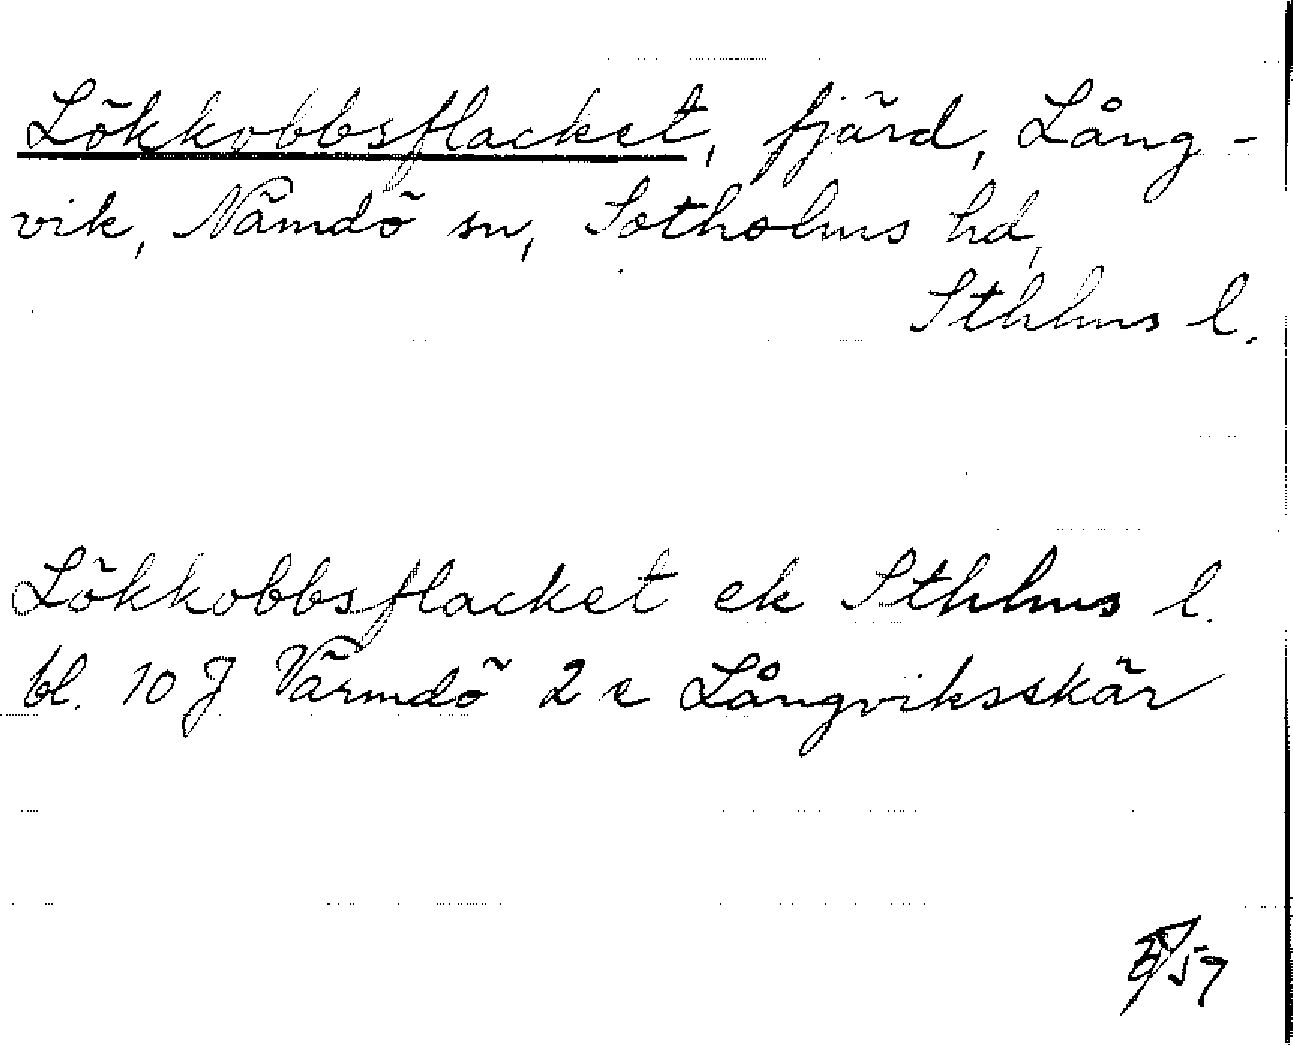 Lökkobbsflacket, fjärd, Lång-
vik, Nämdö sn, Sotholms hd,
Sthlms l.
Lökkobbsflacket ek Sthlms l.
bl. 10 J Värmdö 2 c Långviksskär
57